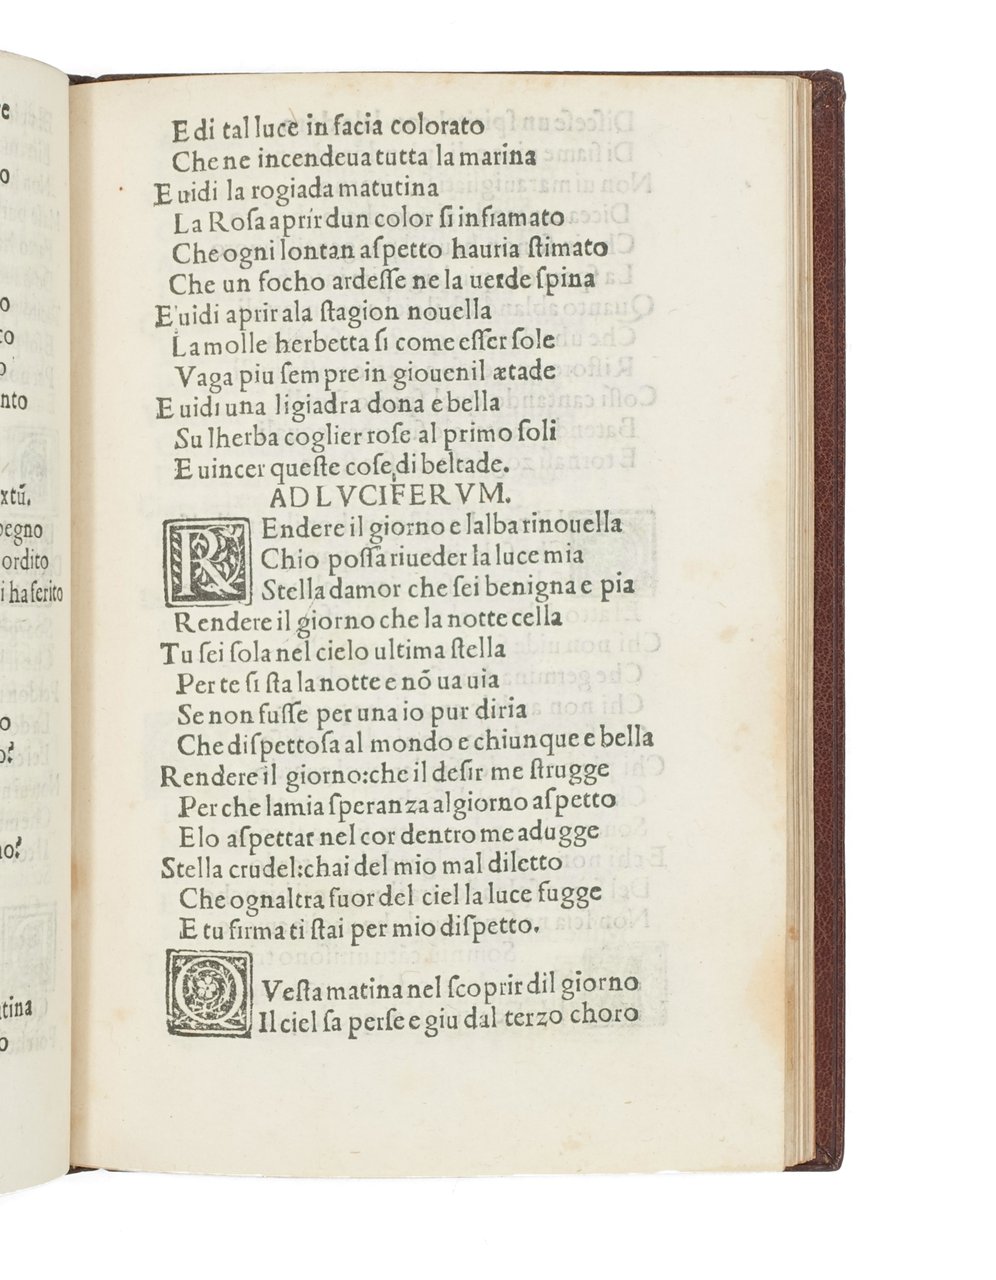 E di tal luce in facia colorato
Che ne incendeua tutta la marina
E uidi la rogiada matutina
La Roſa aprir dun color ſi infiamato
Che ogni lontan aſpetto hauria ſtimato
Che un focho ardeſſe ne la uerde ſpina
E uidi aprir ala ſtagion nouella
La molle herbetta ſi come eſſer ſole
Vaga piu ſempre in giouenil ætade
E uidi una ligiadra dona e bella
Su lherba coglier roſe al primo ſoli
E uincer queſte coſe di beltade.
AD LVCIFERVM.
REndere il giorno e lalba rinouella
Chio poſſa riueder la luce mia
Stella damor che ſei benigna e pia
Rendere il giorno che la notte cella
Tu ſei ſola nel cielo ultima ſtella
Per te ſi ſta la notte e nõ ua uia
Se non fuſſe per una io pur diria
Che diſpettoſa al mondo e chiunque e bella
Rendere il giorno:che il deſir me ſtrugge
Per che la mia ſperanza al giorno aſpetto
E lo aſpettar nel cor dentro me adugge
Stella crudel:chai del mio mal diletto
Che ognaltra fuor del ciel la luce fugge
E tu firma ti ſtai per mio diſpetto.
QVeſta matina nel ſcoprir dil giorno
Il ciel ſa perſe e giu dal terzo choro
xtũ.
pegno
ordito
i ha ferito
nto